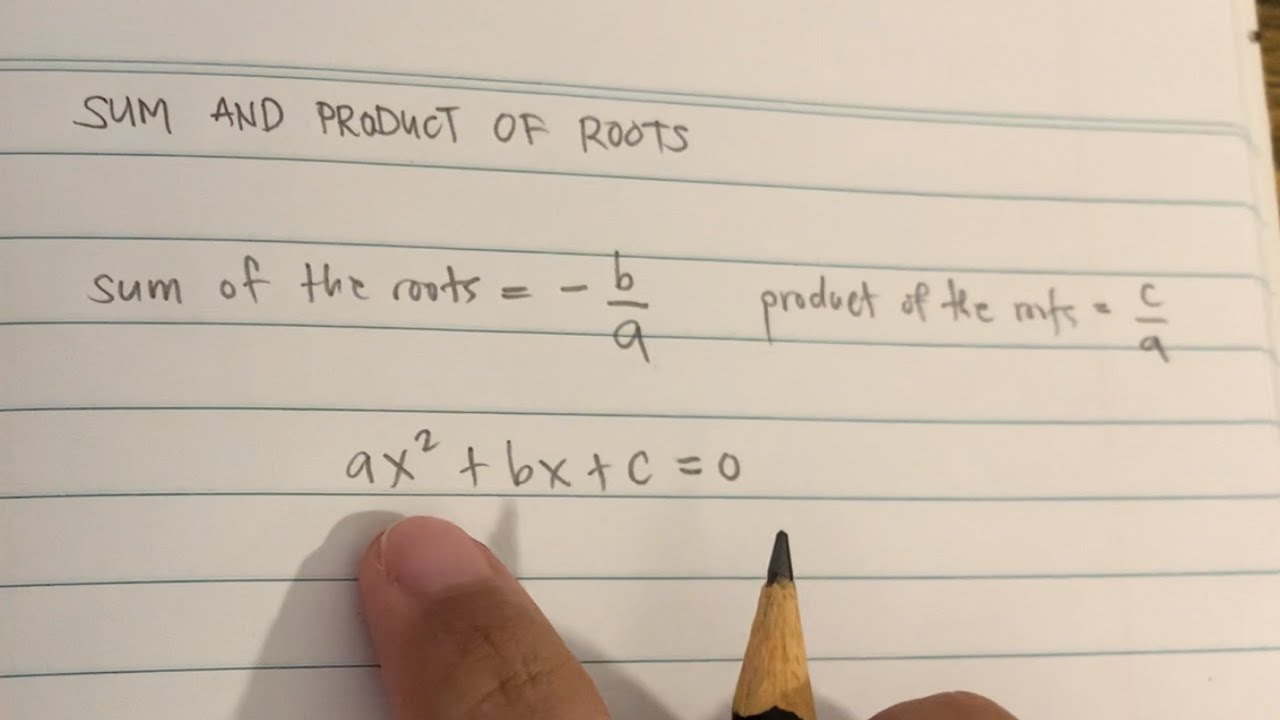 SUM AND PRODUCT OF ROOTS
sum of the roots = - b/a product of the roots = c/a
ax² + bx + c = 0